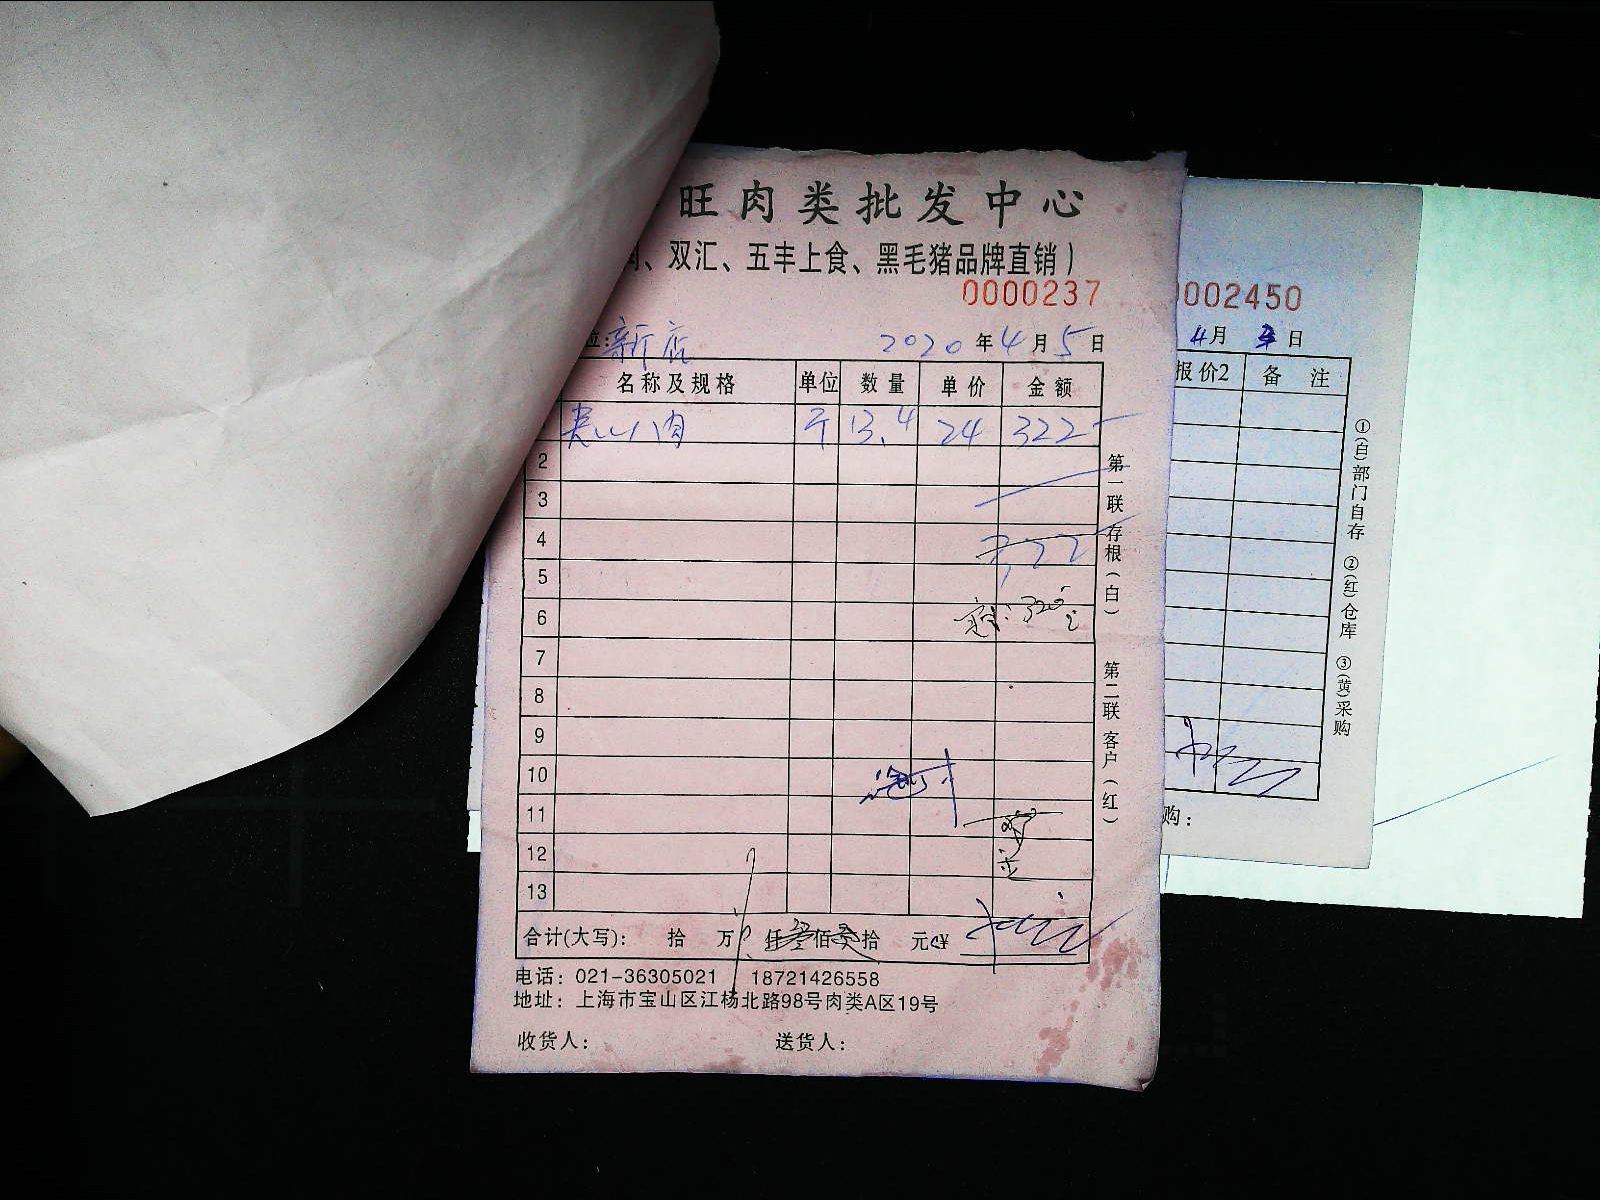 旺肉类批发中心
、双汇、五丰上食、黑毛猪品牌直销）
0000237
位:新店 2020年4月5日
名称及规格 单位 数量 单价 金额
肉 斤 13.4 24 322
2
3
4 322
5
6 实: 320
7
8
9
10
11
12
13
合计(大写): 拾 万 仟 佰 拾 元 ¥
电话: 021-36305021 18721426558
地址: 上海市宝山区江杨北路98号肉类A区19号
收货人: 送货人:
第一联 存根(白) 第二联 客户(红)
0002450
4月 日
报价2 备注
①(白)部门自存 ②(红)仓库 ③(黄)采购
购: